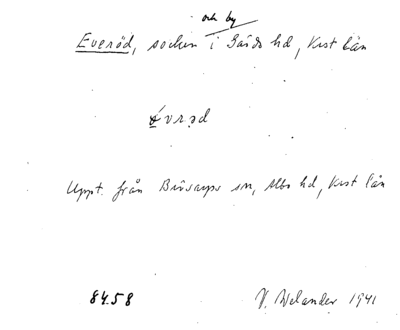 och by
Everöd, socken i Gärds hd, Krist län
ǿvrəd
Uppt. från Bösarps sn, Albo hd, Krist län
84.58 V. Welander 1941